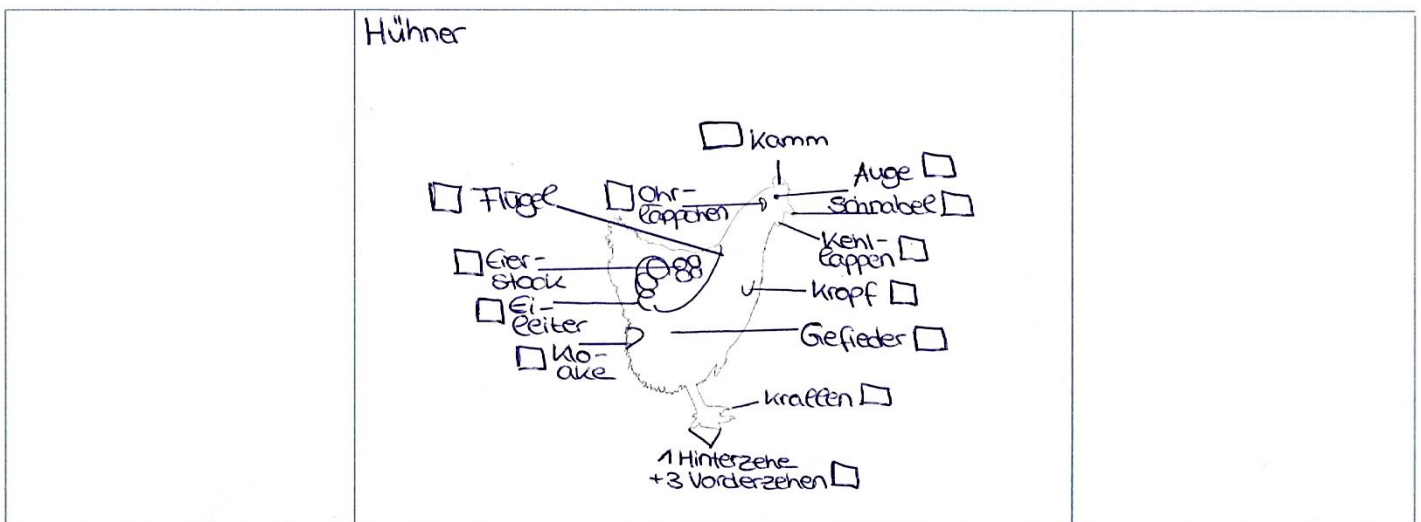 Hühner
Kamm
Auge
Flügel
Ohr-
läppchen
Schnabel
Kehl-
lappen
Eier-
stock
Kropf
Ei-
leiter
Gefieder
Klo-
ake
Krallen
1 Hinterzehe
+3 Vorderzehen